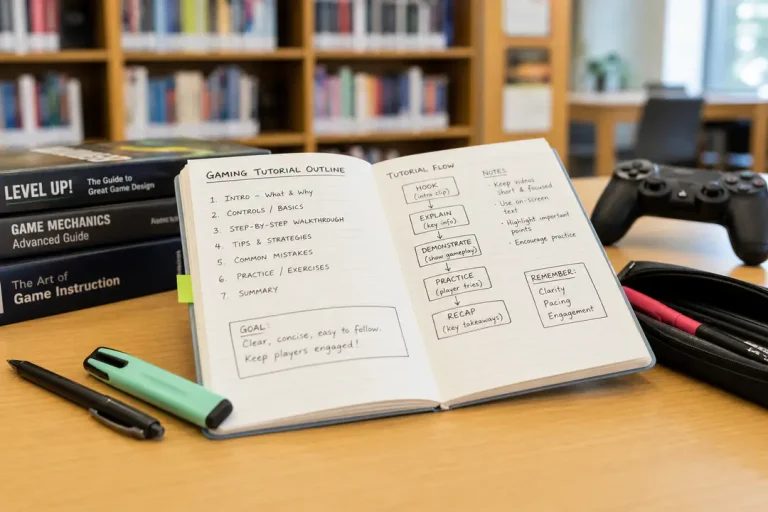 LEVEL UP!
The Guide to
Great Game Design
GAME MECHANICS
Advanced Guide
The Art of
Game Instruction
GAMING TUTORIAL OUTLINE
1. INTRO – WHAT & WHY
2. CONTROLS / BASICS
3. STEP-BY-STEP WALKTHROUGH
4. TIPS & STRATEGIES
5. COMMON MISTAKES
6. PRACTICE / EXERCISES
7. SUMMARY
GOAL:
Clear, concise, easy to follow.
Keep players engaged!
TUTORIAL FLOW
HOOK
(intro clip)
EXPLAIN
(key info)
DEMONSTRATE
(show gameplay)
PRACTICE
(player tries)
RECAP
(key takeaways)
NOTES
· Keep videos
short & focused
· Use on-screen
text
· Highlight important
points
· Encourage practice
REMEMBER:
Clarity
Pacing
Engagement